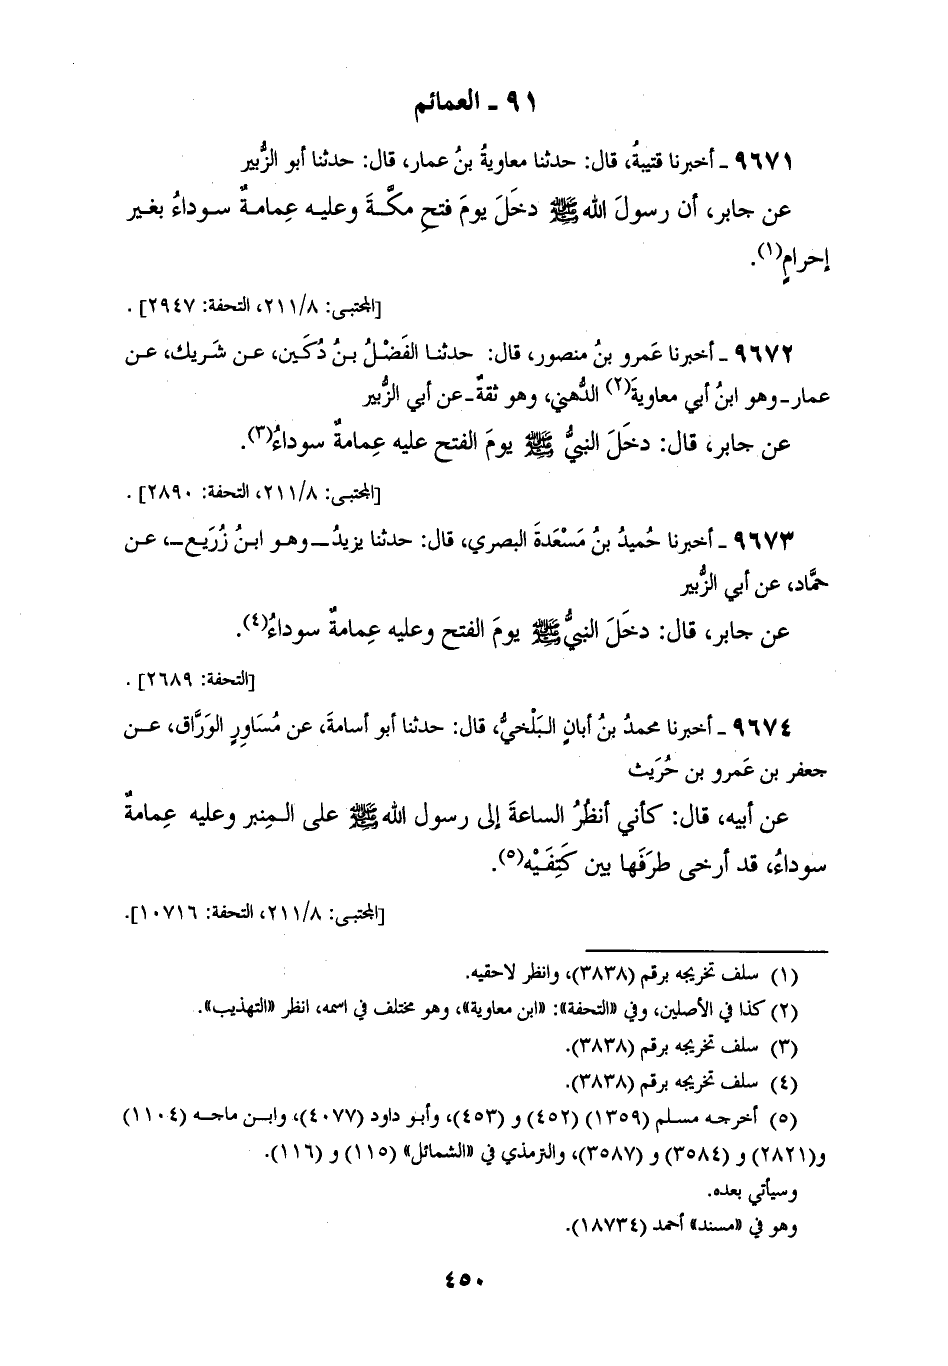 ٩١ ـ العمائم
٩٦٧١ ـ أخبرنا قتيبةُ، قال: حدثنا معاويةُ بنُ عمار، قال: حدثنا أبو الزُّبير
عن جابر، أن رسولَ الله ﷺ دخَلَ يومَ فتحِ مكَّةَ وعليه عِمامةٌ سوداءُ بغير
إحرامٍ(١).
[المجتبى: ٢١١/٨، التحفة: ٢٩٤٧] .
٩٦٧٢ ـ أخبرنا عَمرو بنُ منصور، قال: حدثنا الفَضْلُ بنُ دُكَين، عن شَريك، عن
عمار ـ وهو ابنُ أبي معاويةَ(٢) الدُّهني، وهو ثقةٌ ـ عن أبي الزُّبير
عن جابر، قال: دخَلَ النبيُّ ﷺ يومَ الفتح عليه عِمامةٌ سوداءُ(٣).
[المجتبى: ٢١١/٨، التحفة: ٢٨٩٠] .
٩٦٧٣ ـ أخبرنا حُميدُ بنُ مَسْعَدةَ البصري، قال: حدثنا يزيدُ ـ وهو ابنُ زُرَيع ـ، عن
حمَّاد، عن أبي الزُّبير
عن جابر، قال: دخَلَ النبيُّ ﷺ يومَ الفتح وعليه عِمامةٌ سوداءُ(٤).
[التحفة: ٢٦٨٩] .
٩٦٧٤ ـ أخبرنا محمدُ بنُ أبانٍ البَلْخيُّ، قال: حدثنا أبو أسامةَ، عن مُسَاوِرٍ الوَرَّاق، عن
جعفر بن عَمرو بن حُرَيث
عن أبيه، قال: كأني أنظُرُ الساعةَ إلى رسول الله ﷺ على المِنبر وعليه عِمامةٌ
سوداءُ، قد أرخى طرَفَها بين كَتِفَيْه(٥).
[المجتبى: ٢١١/٨، التحفة: ١٠٧١٦].
(١) سلف تخريجه برقم (٣٨٣٨)، وانظر لاحقيه.
(٢) كذا في الأصلين، وفي «التحفة»: «ابن معاوية»، وهو مختلف في اسمه، انظر «التهذيب».
(٣) سلف تخريجه برقم (٣٨٣٨).
(٤) سلف تخريجه برقم (٣٨٣٨).
(٥) أخرجه مسلم (١٣٥٩) (٤٥٢) و (٤٥٣)، وأبو داود (٤٠٧٧)، وابن ماجه (١١٠٤)
و(٢٨٢١) و (٣٥٨٤) و (٣٥٨٧)، والترمذي في «الشمائل» (١١٥) و (١١٦).
وسيأتي بعده.
وهو في «مسند» أحمد (١٨٧٣٤).
٤٥٠